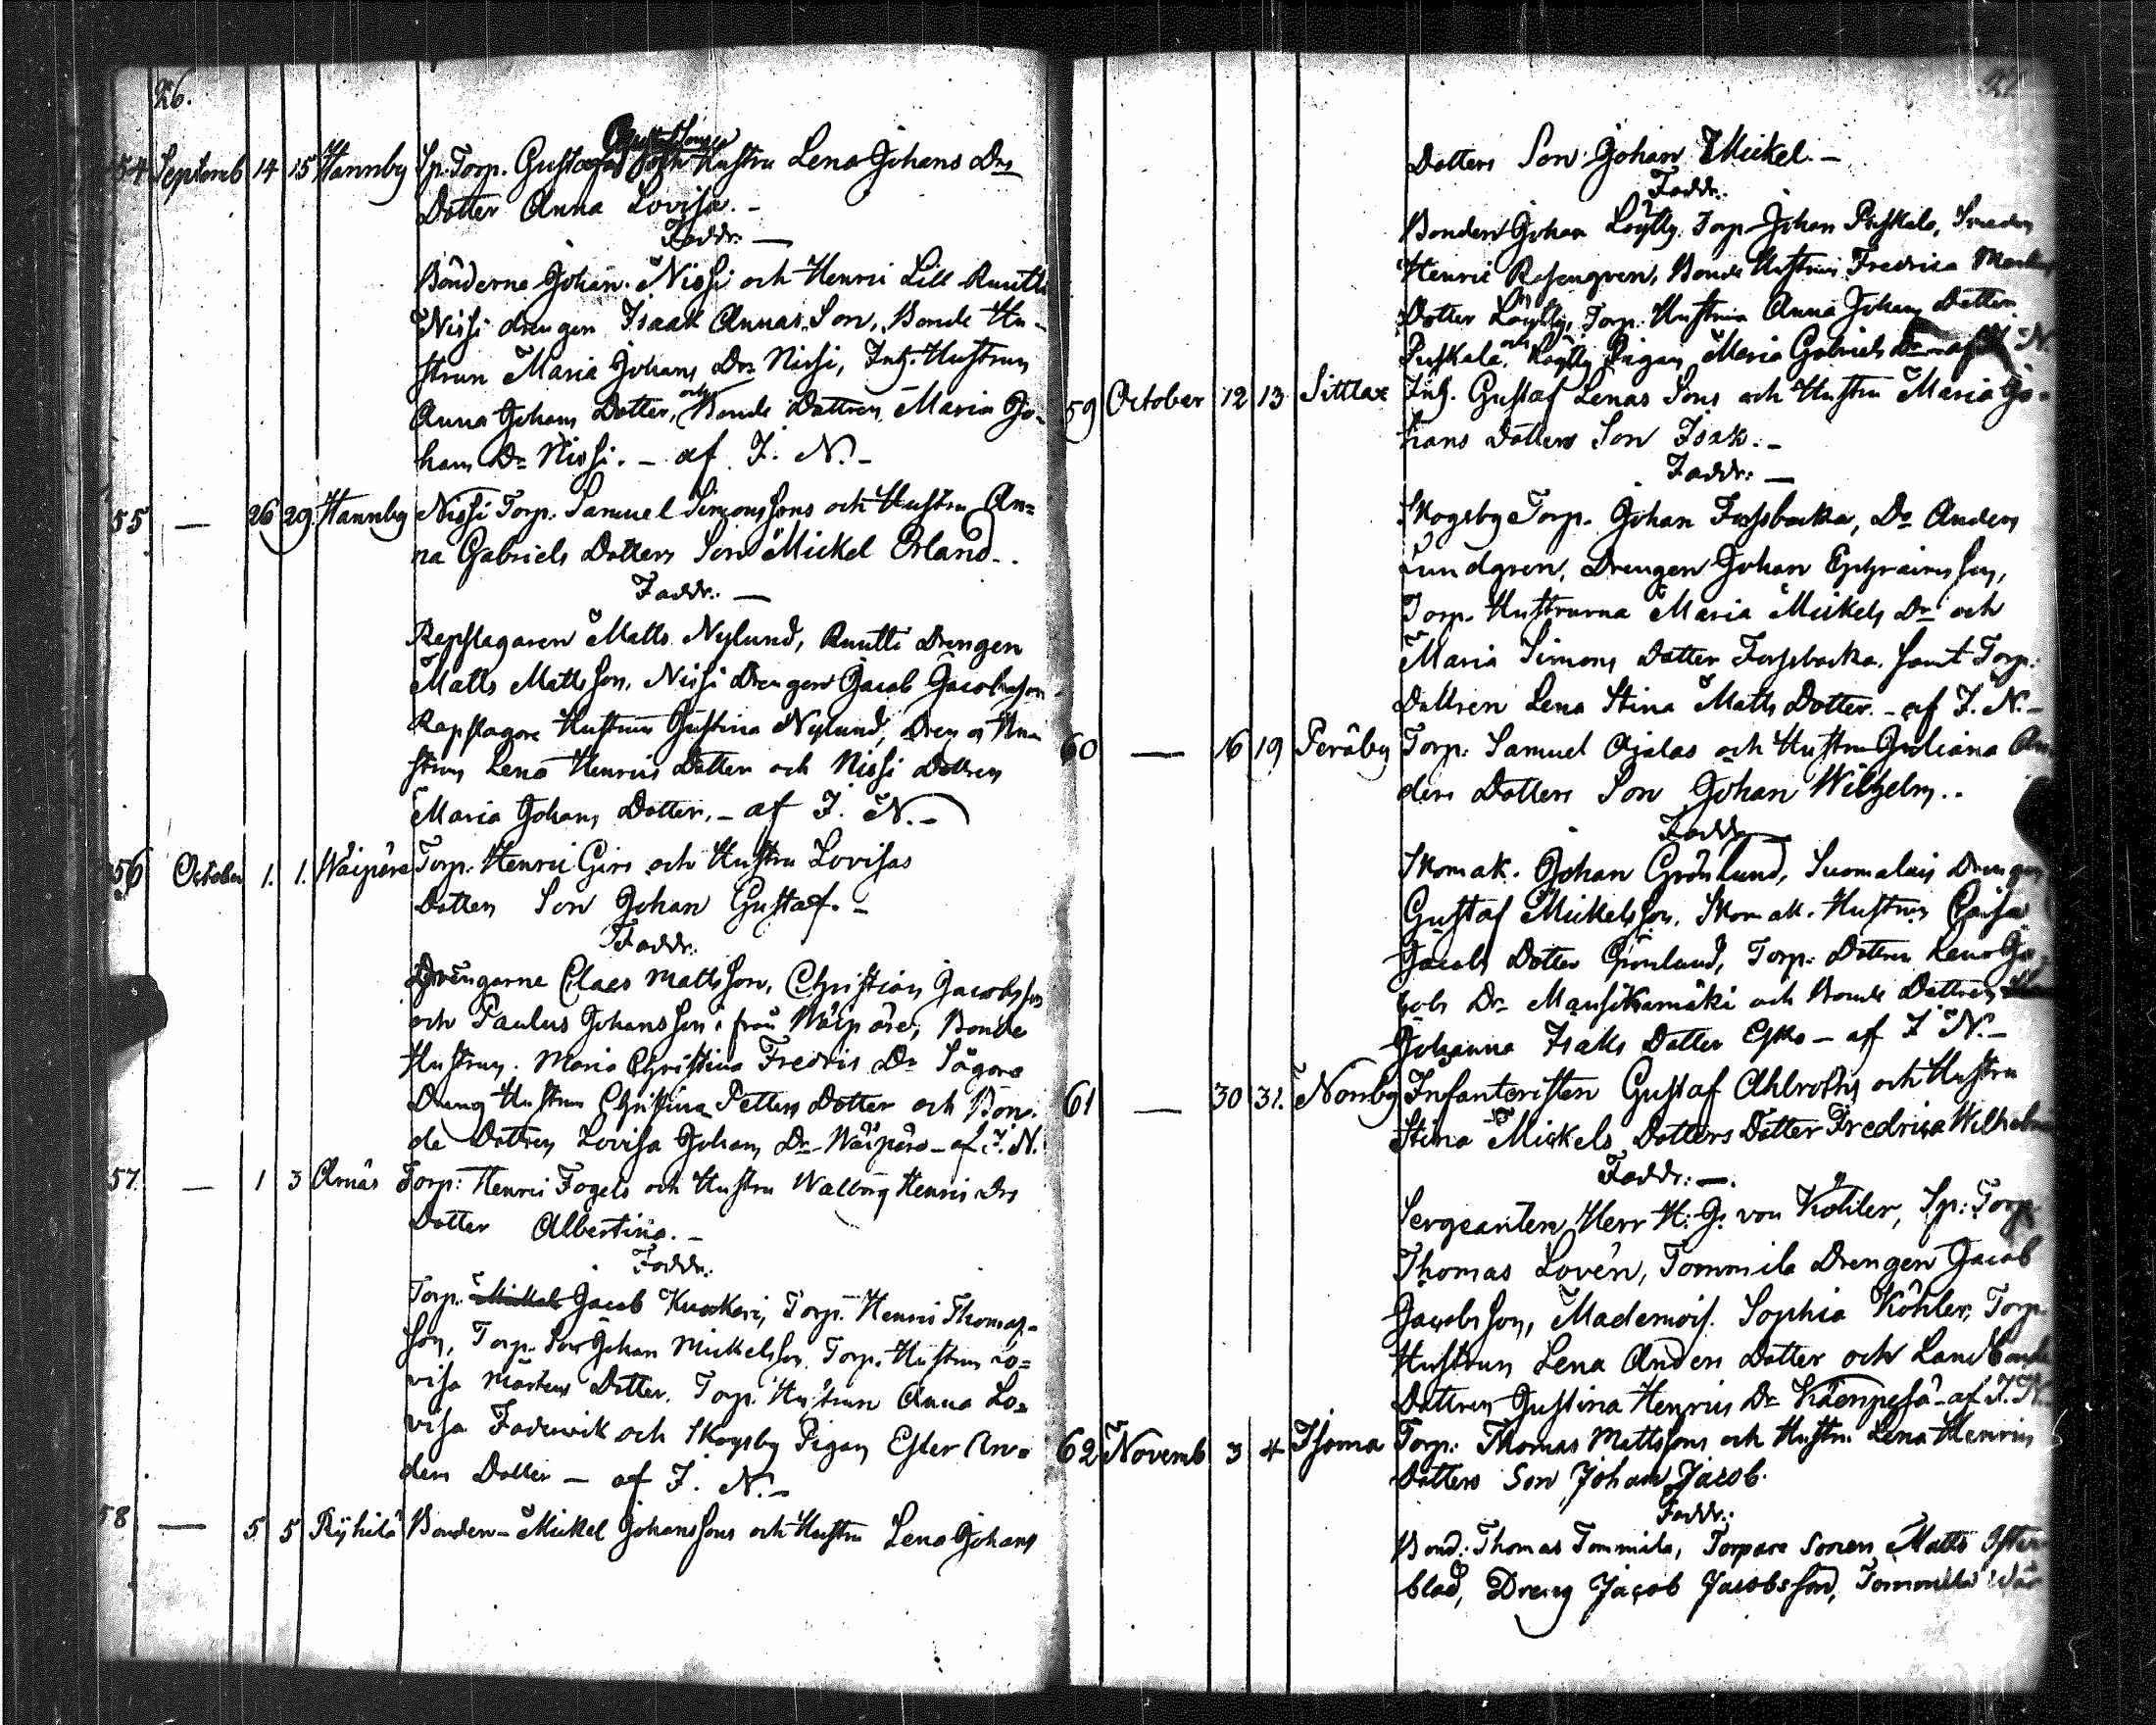 26.
54 Septemb 14 15 Hannby Sp. Torp. Gustafs och Hustru Lena Johans Drs
Dotter Anna Lovisa. -
Faddr: -
Bönderne Johan Nissi och Henric Lill Knuutti
Nissi drengen Isaak Annas Son, Bonde Hu-
strun Maria Johans Dr Nissi, Inh. Hustrun
Anna Johans Dotter, och Bonde Dottren Maria Jo-
hans Dr Nissi. - af J. N. -
55 - 26 29 Hannby Nissi Torp. Samuel Simonssons och Hustru An=
na Gabriels Dotters Son Mickel Erland. .
Faddr: -
Repslagaren Matts Nylund, Knutti Drengen
Matts Mattsson, Nissi Drengen Jacob Jacobsson
Repslagare Hustrun Gustina Nylund, Dreng Hu=
strun Lena Henrics Dotter och Nissi Dottren
Maria Johans Dotter. - af J. N. -
56 October 1. 1. Wäiperä Torp. Henric Girs och Hustru Lovisas
Dotters Son Johan Gustaf. -
Faddr:
Drengarne Claes Mattsson, Christian Jacobsson
och Paulus Johansson från Wäiperä, Bonde
Hustrun Maria Christina Fredris Dr Sägare
Dreng Hustrun Christina Petters Dotter och Bon-
de Dottren Lovisa Johans Dr Wäiperä - af J. N.
57 - 1 3 Arnäs Torp: Henric Fogels och Hustru Walborg Henrics Drs
Dotter Albertina. -
Faddr:
Torp. Jacob Kuokari, Torp. Henric Thomas-
son, Torp. Son Johan Mickelsson, Torp. Hustrun Lo=
visa Mårtens Dotter, Torp. Hustrun Anna Lo=
visa Faderwik och Skogsby Pigan Ester An=
ders Dotter - af J. N. -
58 - 5 5 Ryhilä Bonden Mickel Johanssons och Hustru Lena Johans
27
Dotters Son Johan Mickel. -
Faddr:
Bonden Johan Löylly, Torp. Johan Puskala, Smeden
Henric Rosengren, Bonde Hustrun Fredrica
Dotter Löylly, Torp. Hustrun Anna Johans Dotter
Puskala, och Löylly Pigan Maria Gabriels Dr af J. N.
59 October 12 13 Sittlax Inh. Gustaf Lenas Sons och Hustru Maria Jo=
hans Dotters Son Isak. -
Faddr: -
Skogsby Torp. Johan Forssbacka, Do Anders
Lundgren, Drengen Johan Ephraimsson,
Torp. Hustrurna Maria Mickels Dr och
Maria Simons Dotter Forssbacka, samt Torp.
Dottren Lena Stina Matts Dotter. - af J. N. -
60 - 16 19 Peräby Torp: Samuel Ojalas och Hustru Juliana An
ders Dotters Son Johan Wilhelm. .
Faddr
Skomak. Johan Grönlund, Suomalais Drengen
Gustaf Mickelsson, Skomak. Hustrun Caisa
Jacobs Dotter Grönlund, Torp. Dottren Lena Ja=
cobs Dr Mansikamäki och Bonde Dottren
Johanna Isaks Dotter Esko - af J. N. -
61 - 30 31. Norrby Infanteristen Gustaf Ahlroths och Hustru
Stina Mickels Dotters Dotter Fredrica Wilhelmina
Faddr: -.
Sergeanten Herr H: G: von Köhler, Sp: Torp.
Thomas Lovén, Tommila Drengen Jacob
Jacobsson, Mademois. Sophia Köhler, Torp.
Hustrun Lena Anders Dotter och Landbonde
Dottren Gustina Henrics Dr Käenpesä - af J. N.
62 Novemb 3 4 Isoma Torp: Thomas Mattssons och Hustru Lena Henrics
Dotters Son Johan Jacob.
Faddr:
Bond: Thomas Tommila, Torpare Sonen Matts Öster
blad, Dreng Jacob Jacobsson, Tommila